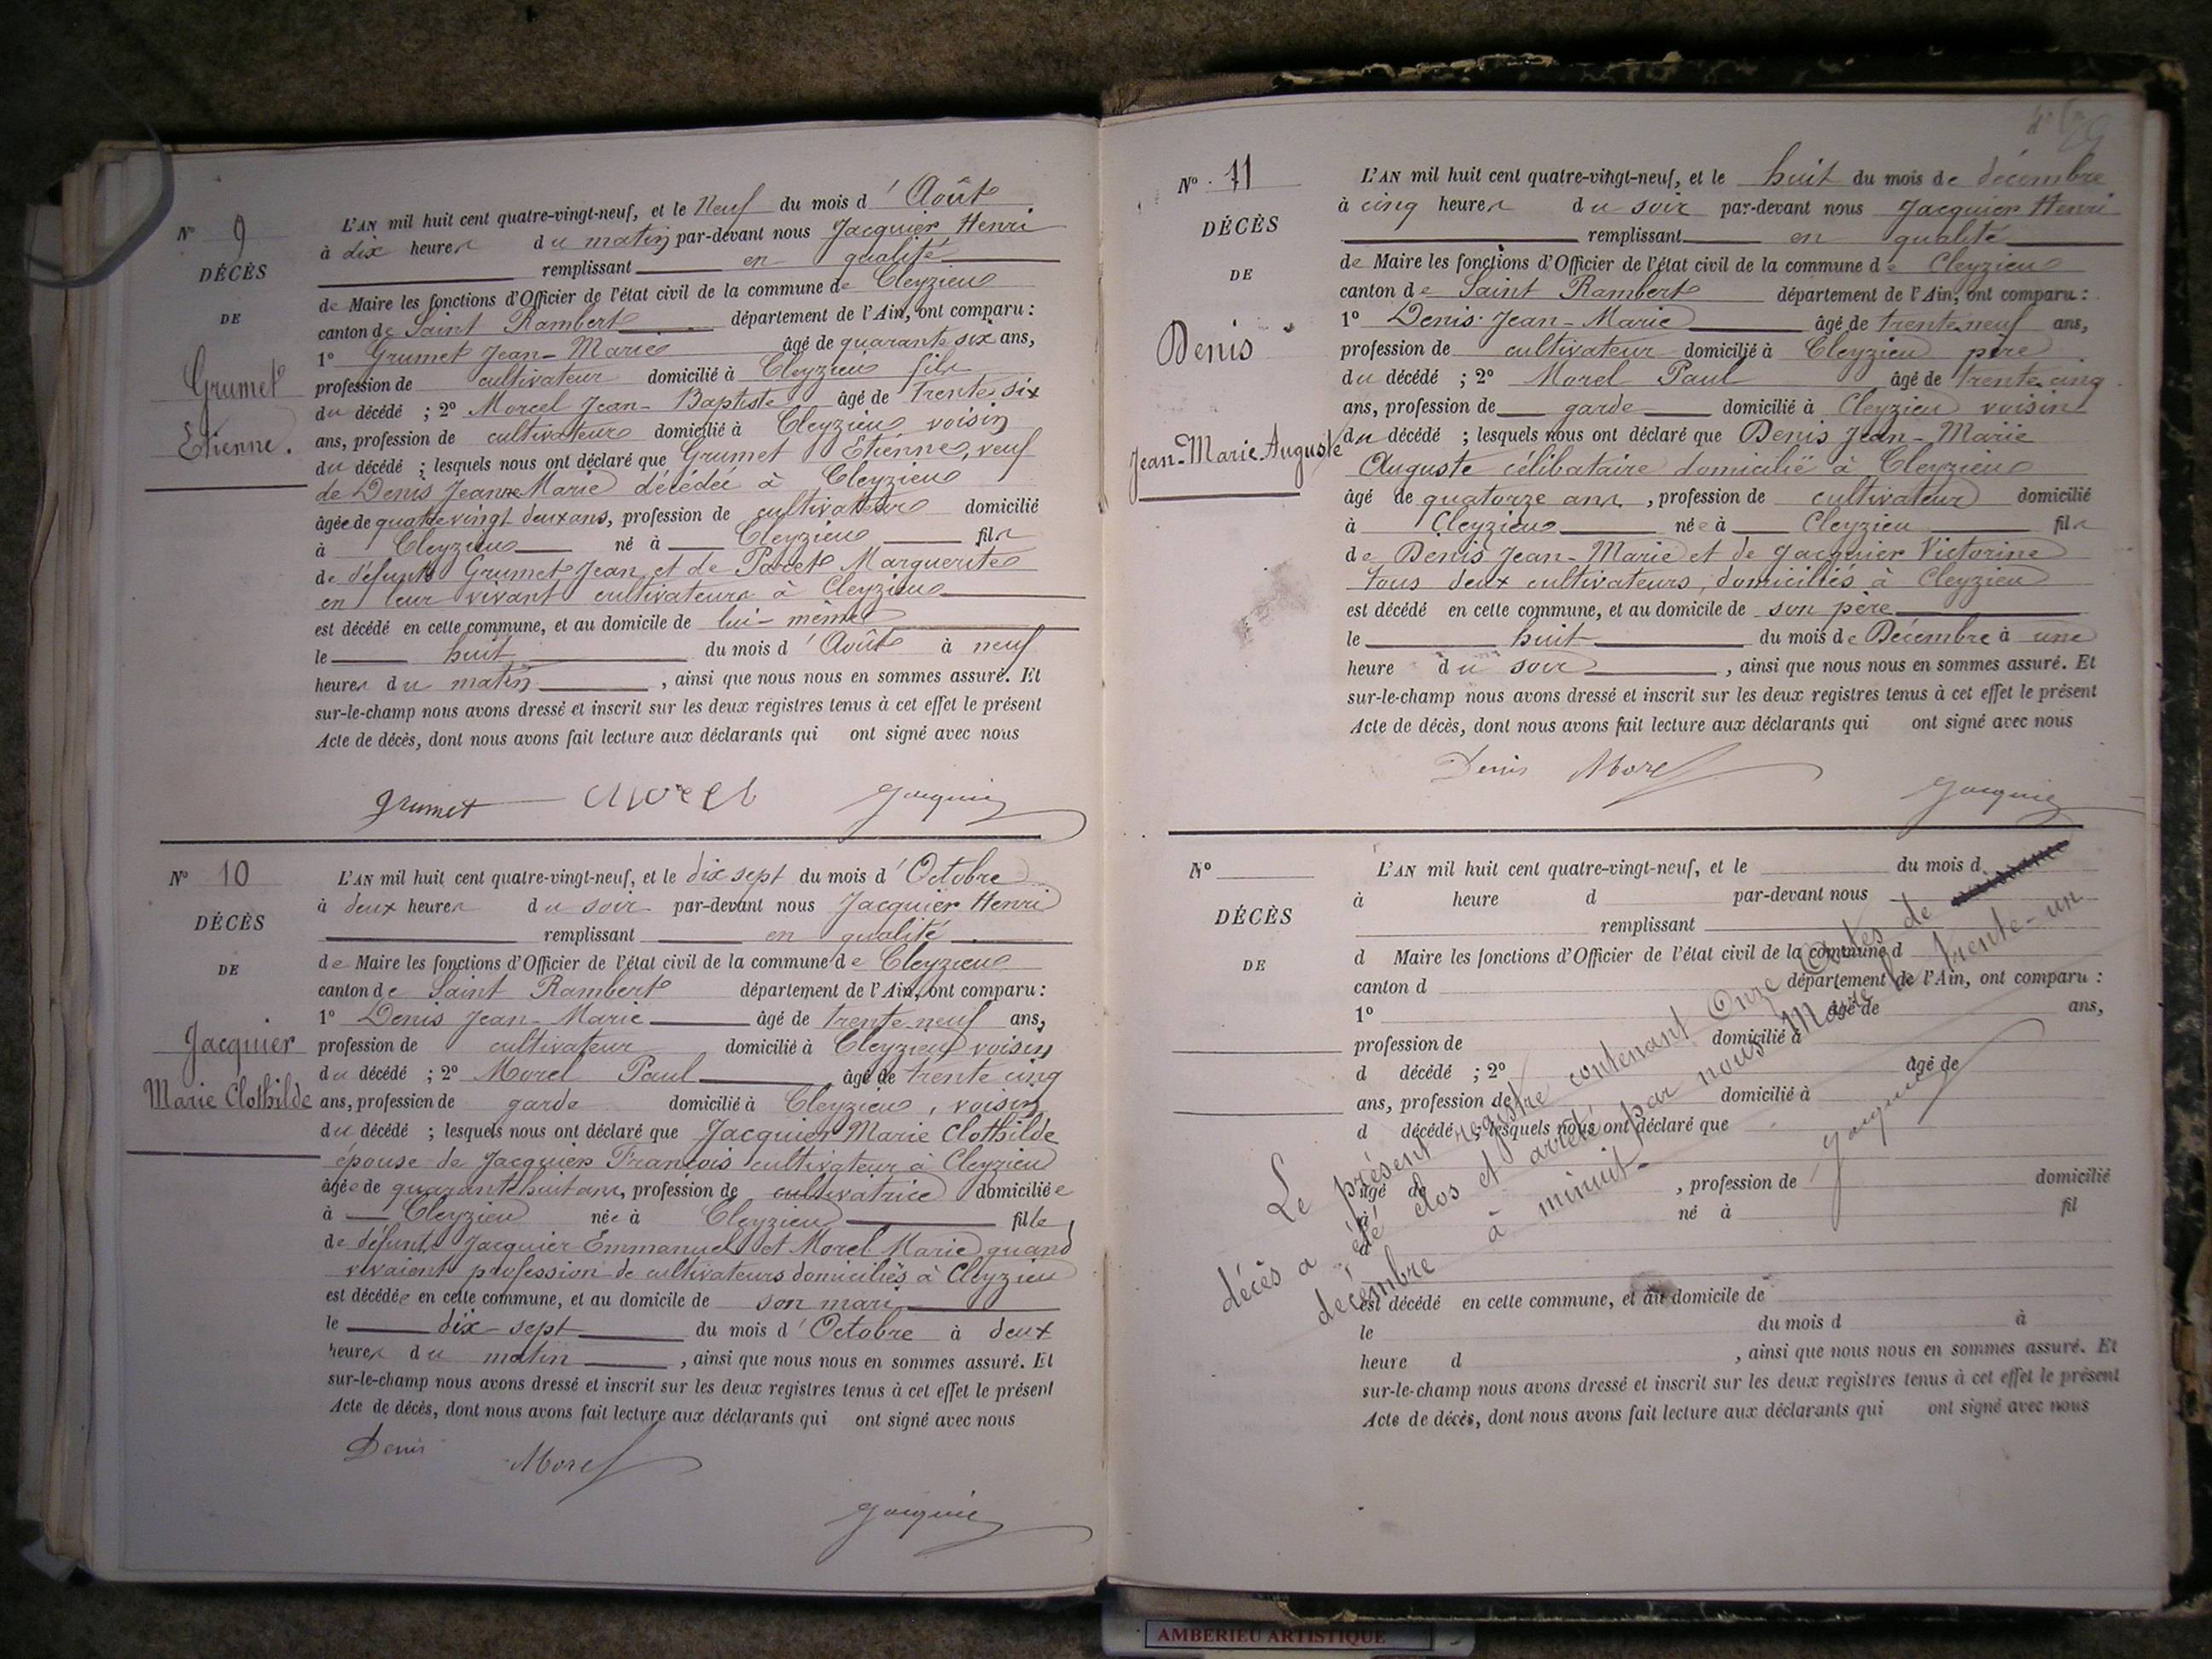 N° 9
DÉCÈS
DE
Grumet
Etienne.
L'AN mil huit cent quatre-vingt-neuf, et le Neuf du mois d'Août
à dix heures du matin par-devant nous Jacquier Henri
remplissant en qualité
de Maire les fonctions d'Officier de l'état civil de la commune de Cleyzieu
canton de Saint Rambert département de l'Ain, ont comparu :
1° Grumet Jean-Marie âgé de quarante six ans,
profession de cultivateur domicilié à Cleyzieu fils
du décédé ; 2° Morel Jean-Baptiste âgé de trente six
ans, profession de cultivateur domicilié à Cleyzieu voisin
du décédé ; lesquels nous ont déclaré que Grumet Etienne, veuf
de Denis Jeanne Marie décédée à Cleyzieu
âgé de quatre vingt deux ans, profession de cultivateur domicilié
à Cleyzieu né à Cleyzieu fils
de défunts Grumet Jean et de Marguerite
en leur vivant cultivateurs à Cleyzieu
est décédé en cette commune, et au domicile de lui-même
le huit du mois d'Août à neuf
heures du matin, ainsi que nous nous en sommes assuré. Et
sur-le-champ nous avons dressé et inscrit sur les deux registres tenus à cet effet le présent
Acte de décès, dont nous avons fait lecture aux déclarants qui ont signé avec nous
Grumet Morel Jacquier
N° 10
DÉCÈS
DE
Jacquier
Marie Clothilde
L'AN mil huit cent quatre-vingt-neuf, et le dix sept du mois d'Octobre
à deux heures du soir par-devant nous Jacquier Henri
remplissant en qualité
de Maire les fonctions d'Officier de l'état civil de la commune de Cleyzieu
canton de Saint Rambert département de l'Ain, ont comparu :
1° Denis Jean-Marie âgé de trente neuf ans,
profession de cultivateur domicilié à Cleyzieu voisin
du décédé ; 2° Morel Paul âgé de trente cinq
ans, profession de garde domicilié à Cleyzieu, voisin
du décédé ; lesquels nous ont déclaré que Jacquier Marie Clothilde
épouse de Jacquier François cultivateur à Cleyzieu
âgée de quarante huit ans, profession de cultivatrice domiciliée
à Cleyzieu née à Cleyzieu fille
de défunts Jacquier Emmanuel et Morel Marie quand
vivaient profession de cultivateurs domiciliés à Cleyzieu
est décédée en cette commune, et au domicile de son mari
le dix-sept du mois d'Octobre à deux
heures du matin, ainsi que nous nous en sommes assuré. Et
sur-le-champ nous avons dressé et inscrit sur les deux registres tenus à cet effet le présent
Acte de décès, dont nous avons fait lecture aux déclarants qui ont signé avec nous
Denis Morel
Jacquier
N° 11
DÉCÈS
DE
Denis
Jean-Marie Auguste
L'AN mil huit cent quatre-vingt-neuf, et le huit du mois de décembre
à cinq heures du soir par-devant nous Jacquier Henri
remplissant en qualité
de Maire les fonctions d'Officier de l'état civil de la commune de Cleyzieu
canton de Saint Rambert département de l'Ain, ont comparu :
1° Denis Jean-Marie âgé de trente neuf ans,
profession de cultivateur domicilié à Cleyzieu père
du décédé ; 2° Morel Paul âgé de trente cinq
ans, profession de garde domicilié à Cleyzieu voisin
du décédé ; lesquels nous ont déclaré que Denis Jean-Marie
Auguste célibataire domicilié à Cleyzieu
âgé de quatorze ans, profession de cultivateur domicilié
à Cleyzieu née à Cleyzieu fils
de Denis Jean-Marie et de Jacquier Victorine
tous deux cultivateurs, domiciliés à Cleyzieu
est décédé en cette commune, et au domicile de son père
le huit du mois de Décembre à une
heure du soir, ainsi que nous nous en sommes assuré. Et
sur-le-champ nous avons dressé et inscrit sur les deux registres tenus à cet effet le présent
Acte de décès, dont nous avons fait lecture aux déclarants qui ont signé avec nous
Denis Morel
Jacquier
N°
DÉCÈS
DE
L'AN mil huit cent quatre-vingt-neuf, et le du mois d
à heure d par-devant nous
remplissant
d Maire les fonctions d'Officier de l'état civil de la commune d
canton d département de l'Ain, ont comparu :
1° âgé de ans,
profession de domicilié à
d décédé ; 2° âgé de
ans, profession de domicilié à
d décédé ; lesquels nous ont déclaré que
âgé de , profession de domicilié
à né à fil
d
est décédé en cette commune, et au domicile de
le du mois d à
heure d , ainsi que nous nous en sommes assuré. Et
sur-le-champ nous avons dressé et inscrit sur les deux registres tenus à cet effet le présent
Acte de décès, dont nous avons fait lecture aux déclarants qui ont signé avec nous
Le présent registre contenant Onze Actes de
décès a été clos et arrêté par nous Maire le trente-un
décembre à minuit.
Jacquier
AMBERIEU ARTISTIQUE